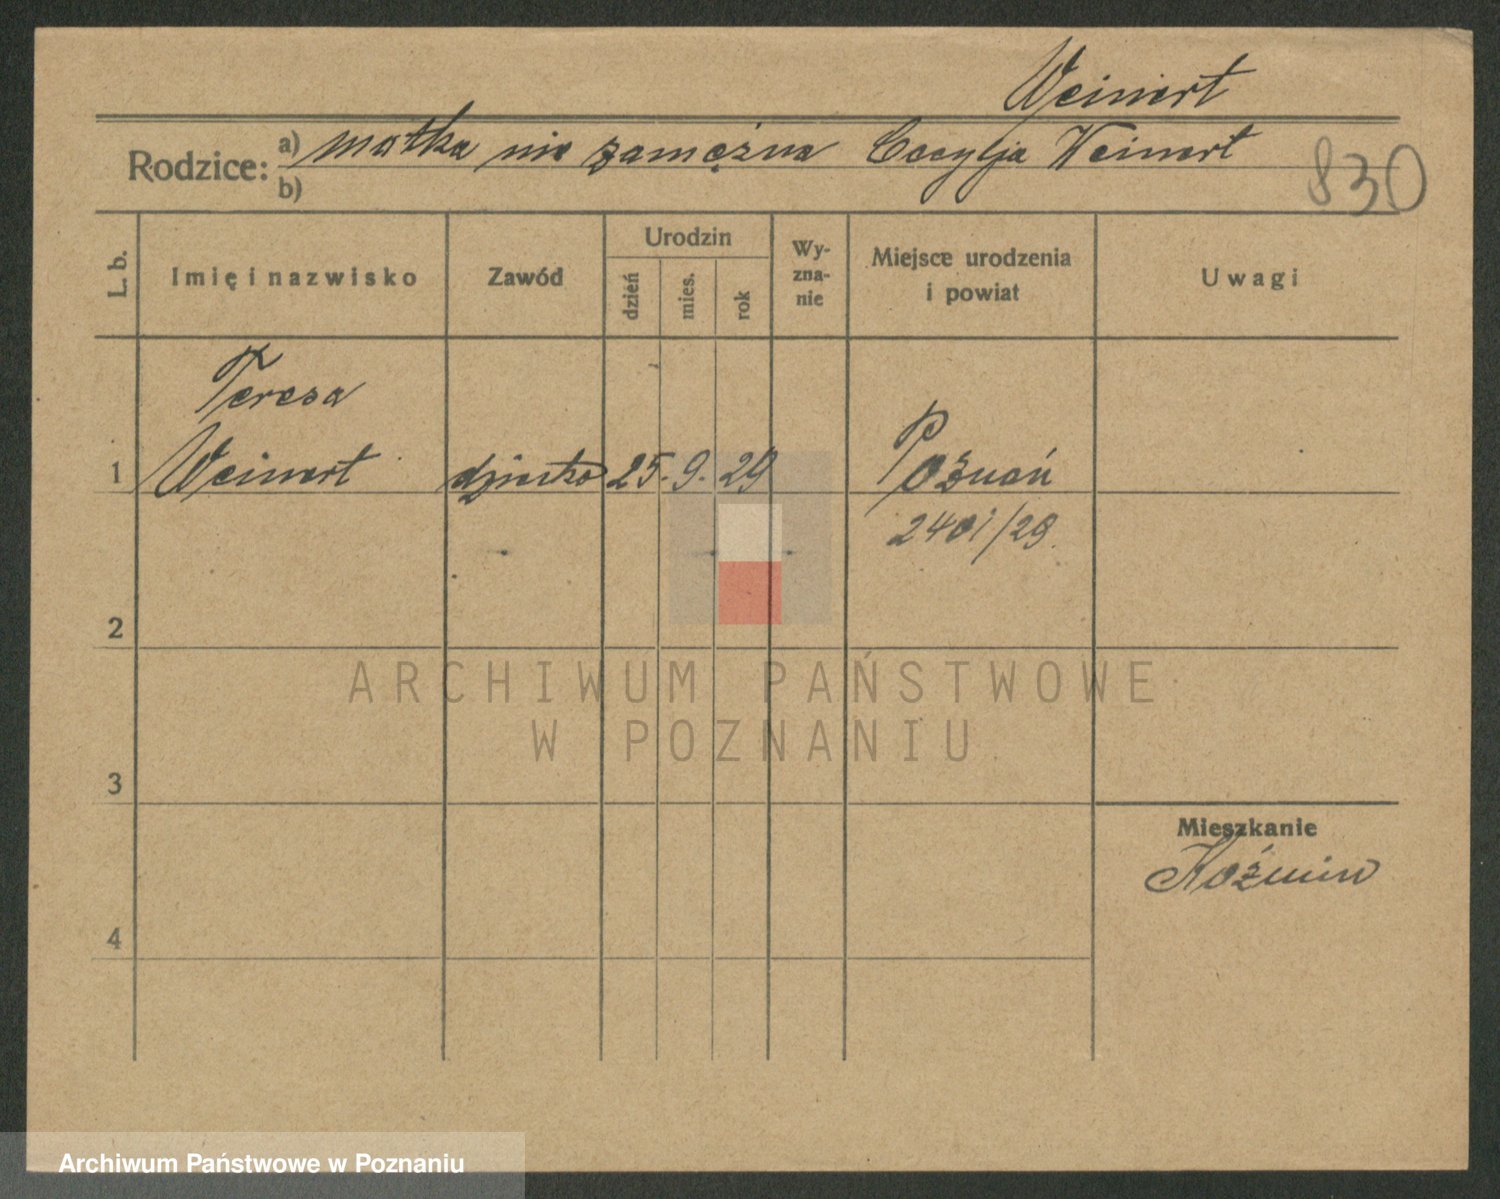 Weinert
Rodzice: a) matka nie zamężna Cecylja Weinert
b)
830
L. b.
Imię i nazwisko
Zawód
Urodzin
dzień
mies.
rok
Wy-
zna-
nie
Miejsce urodzenia
i powiat
Uwagi
Teresa
1 Weinert dziecko 25. 9. 29 Poznań
2401/29.
2
3
Mieszkanie
Koźmin
4
ARCHIWUM PAŃSTWOWE
W POZNANIU
Archiwum Państwowe w Poznaniu